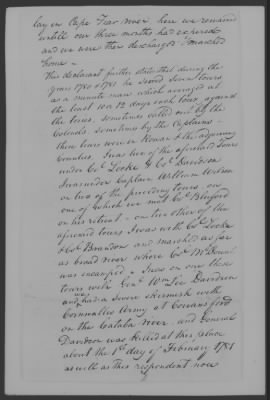 lay on Cape Fear river here we remained
untill our three months had expired
and we were then discharged & marched
home —
This declarant further state that during the
years 1780 & 1781 he served seven tours
as a minute man which averaged at
the least 10 or 12 days each tour against
the tories, sometimes called out by the
Colonels sometimes by the Captains —
these tours were in Rowan & the adjoining
Counties. I was two of the aforesaid tours
under Col. Locke & Col Davidson
I was under Captain William Wilson
on two of the preceding tours, on
one of which we met Col Buford
on his retreat — on two other of the
aforesaid tours I was with Col Locke
& Col. Brandon and marched as far
as broad river where Col McDowel
was encamped & I was on one these
tours with Genl Wm Lee Davidson
and we had a severe skermish with
Cornwallis Army at Cowans ford
on the Cataba river and General
Davidson was killed at this place
about the 1st day of February 1781
as well as this respondent now